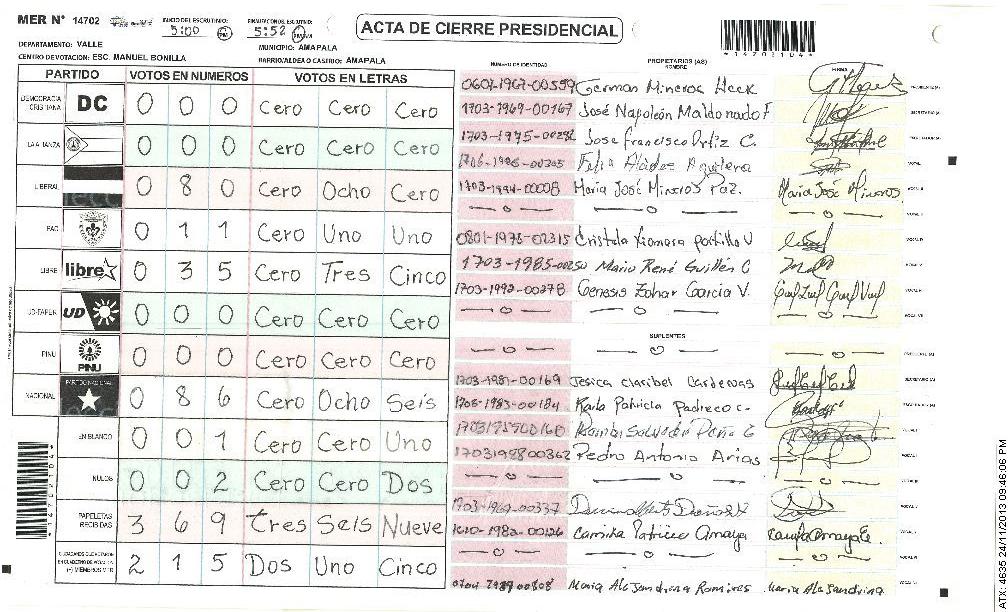 MER N° 14702
INICIO DEL ESCRUTINIO: 5:00 PM
FINALIZACIÓN DEL ESCRUTINIO: 5:52 PM
ACTA DE CIERRE PRESIDENCIAL
*14702104*
DEPARTAMENTO: VALLE
MUNICIPIO: AMAPALA
CENTRO DE VOTACION: ESC. MANUEL BONILLA
BARRIO/ALDEA O CASERIO: AMAPALA
PARTIDO VOTOS EN NUMEROS VOTOS EN LETRAS
DEMOCRACIA CRISTIANA DC 0 0 0 Cero Cero Cero
LA ALIANZA 0 0 0 Cero Cero Cero
LIBERAL 0 8 0 Cero Ocho Cero
PAC 0 1 1 Cero Uno Uno
LIBRE libre 0 3 5 Cero Tres Cinco
UD-FAPER UD 0 0 0 Cero Cero Cero
PINU PINU 0 0 0 Cero Cero Cero
NACIONAL PARTIDO NACIONAL 0 8 6 Cero Ocho Seis
EN BLANCO 0 0 1 Cero Cero Uno
NULOS 0 0 2 Cero Cero Dos
PAPELETAS RECIBIDAS 3 6 9 tres Seis Nueve
2 1 5 Dos Uno Cinco
NUMERO DE IDENTIDAD PROPIETARIOS (AS) NOMBRE FIRMA
0601-1967-00559 German Mineroa Heck
1703-1969-00167 José Napoleón Maldonado F
1703-1975-00282 Jose francisco Ortiz C.
1706-1996-00305
1703-1994-00008 Maria José Mineros Paz. Maria José Mineros.
0801-1978-02315 Cristela Xiomara portillo V
1703-1985-00250 Mario René Guillén C
1703-1992-00278 Genesis Zohar Garcia V.
SUPLENTES
1703-1981-00169 Jesica claribel Cardenas
1703-1983-00184 Karla Patricia Pacheco C.
Salvador Peña G
1703199800362 Pedro Antonio Arias
1703-1969-00337
Camila Patricia Amaya
Maria Alejandrina Ramires Maria Alejandrina
*14702104*
ATX: 4635 24/11/2013 09:46:06 PM